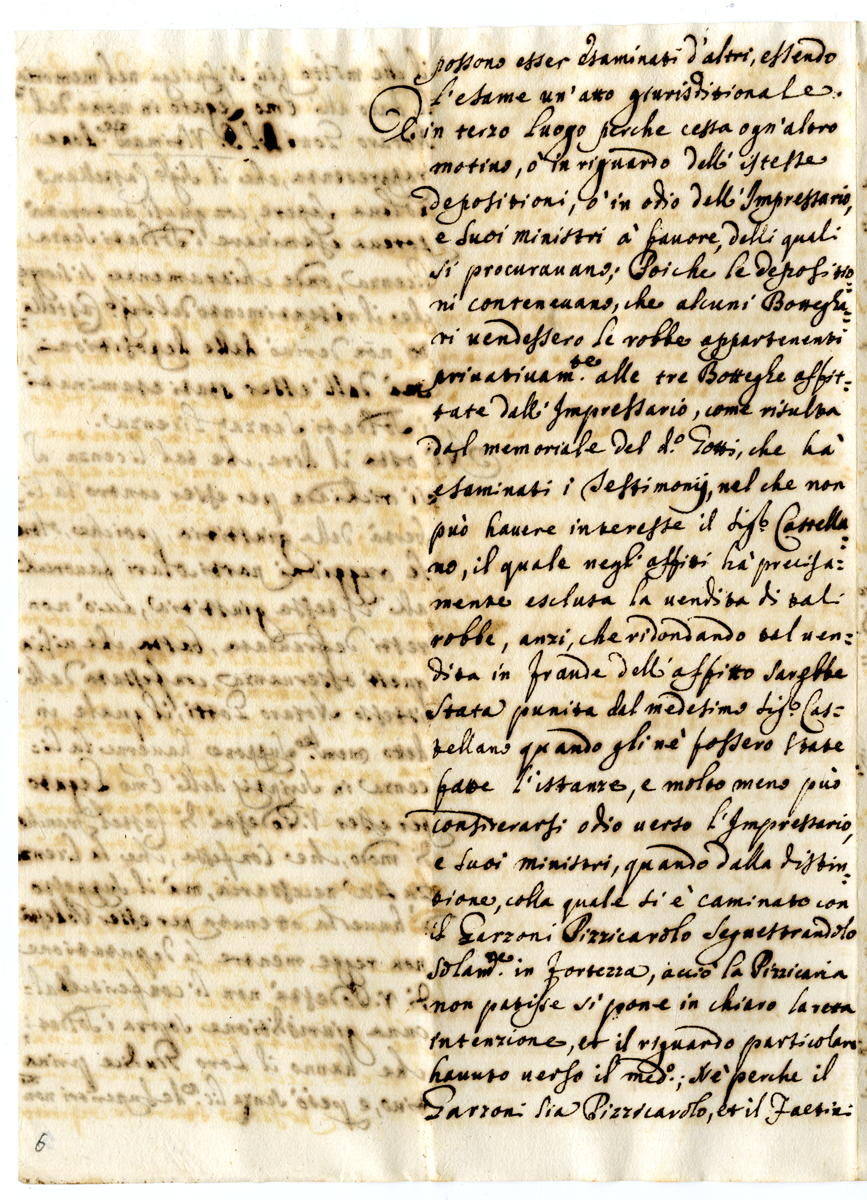 possono esser esaminati d'altri, essendo
l'esame un'atto giurisditionale.
E in terzo luogo perche cessa ogn'altro
motivo, ò in riguardo dell'istesse
depositioni, ò in odio dell'Impressario,
e suoi ministri à favore, delli quali
si procuravano; Poiche le depositio=
ni contenevano, che alcuni Bottegha=
ri vendessero le robbe appartenenti
privativam.te alle tre Botteghe affit=
tate dall'Impressario, come risulta
dal memoriale del d.o Gotti, che hà
esaminati i Testimonij, nel che non
può havere interesse il Sig.r Castella=
no, il quale negl'affitti hà precisa=
mente esclusa la vendita di tali
robbe, anzi, che ridondando tal ven=
dita in fraude dell'affitto sarebbe
stata punita dal medesimo Sig.r Cas=
tellano quando gli n'è fossero state
fatte l'istanze, e molto meno può
considerarsi odio verso l'Impressario,
e suoi ministri, quando dalla distin=
tione, colla quale si è caminato con
il Garzoni Pizzicarolo sequestrandolo
solam.te in fortezza, acciò la Pizzicaria
non patisse si pone in chiaro la retta
intenzione, et il riguardo particolare
havuto verso il med.o; Nè perche il
Garzoni sia Pizzicarolo, et il Faetini
6